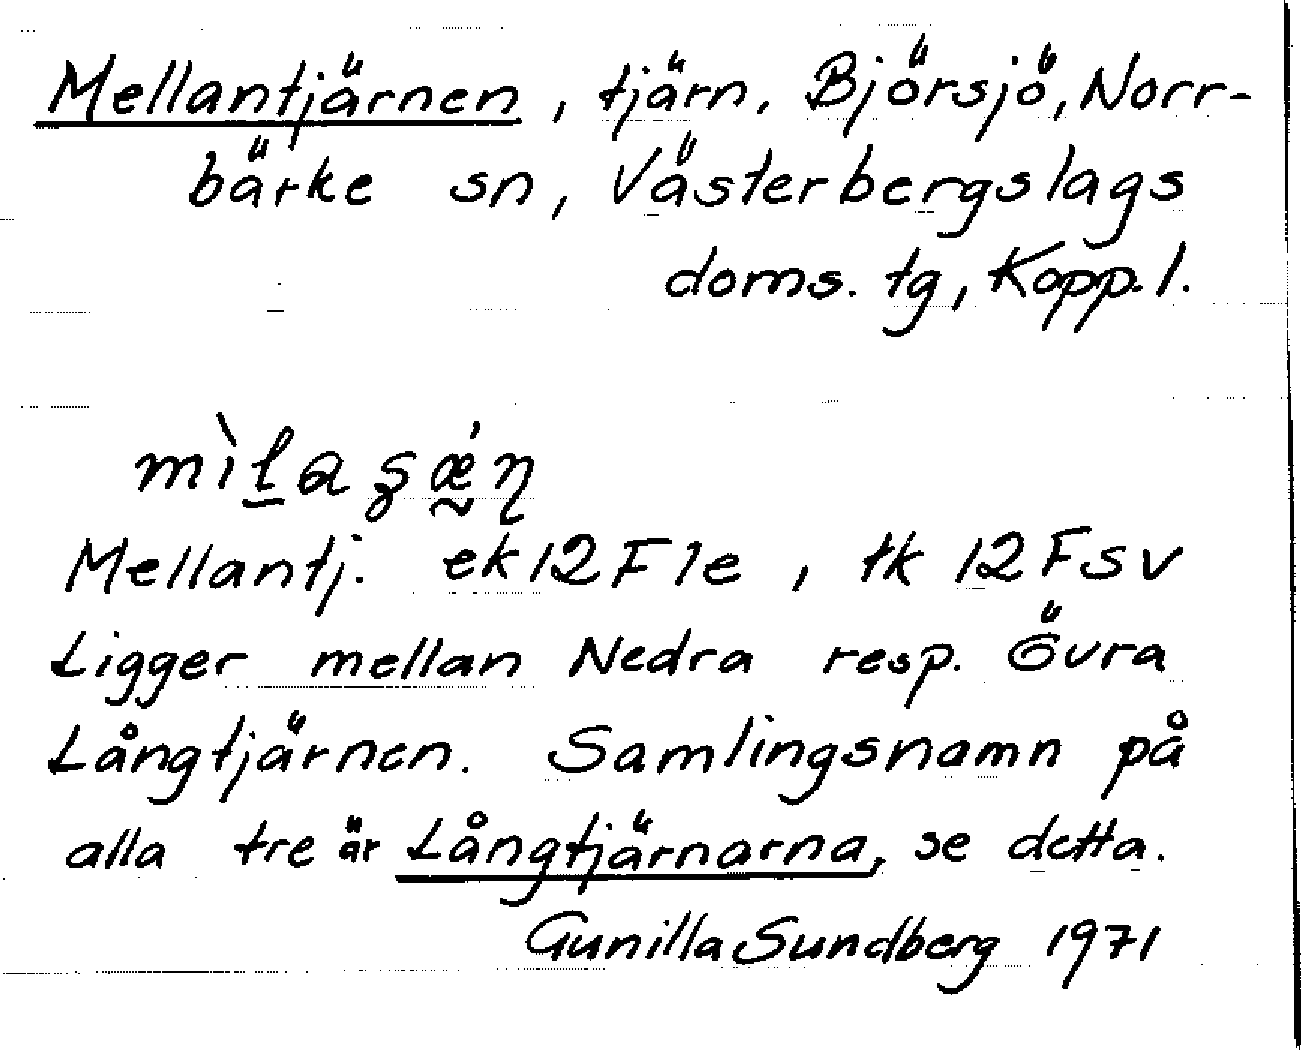 Mellantjärnen, tjärn, Björsjö, Norr-
bärke sn, Västerbergslags
doms. tg, Kopp. l.
Mellantj. ek 12 F 1e, tk 12 F SV
Ligger mellan Nedra resp. Övra
Långtjärnen. Samlingsnamn på
alla tre är Långtjärnarna, se detta.
Gunilla Sundberg 1971